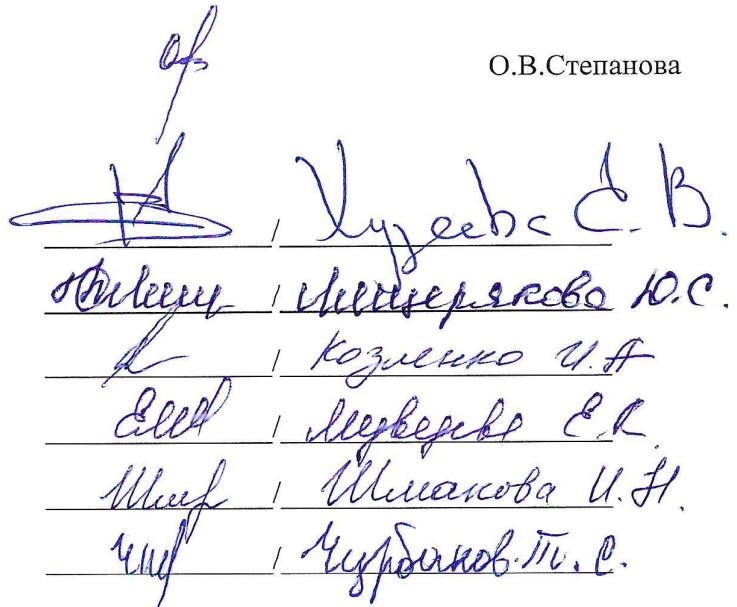 О.В.Степанова
/ Хузеева Е. В.
/ Мещерякова Ю.С.
/ Козленко И.А
/ Медведева Е.К.
/ Шмакова И.Н.
/ Чурбанов Т.С.